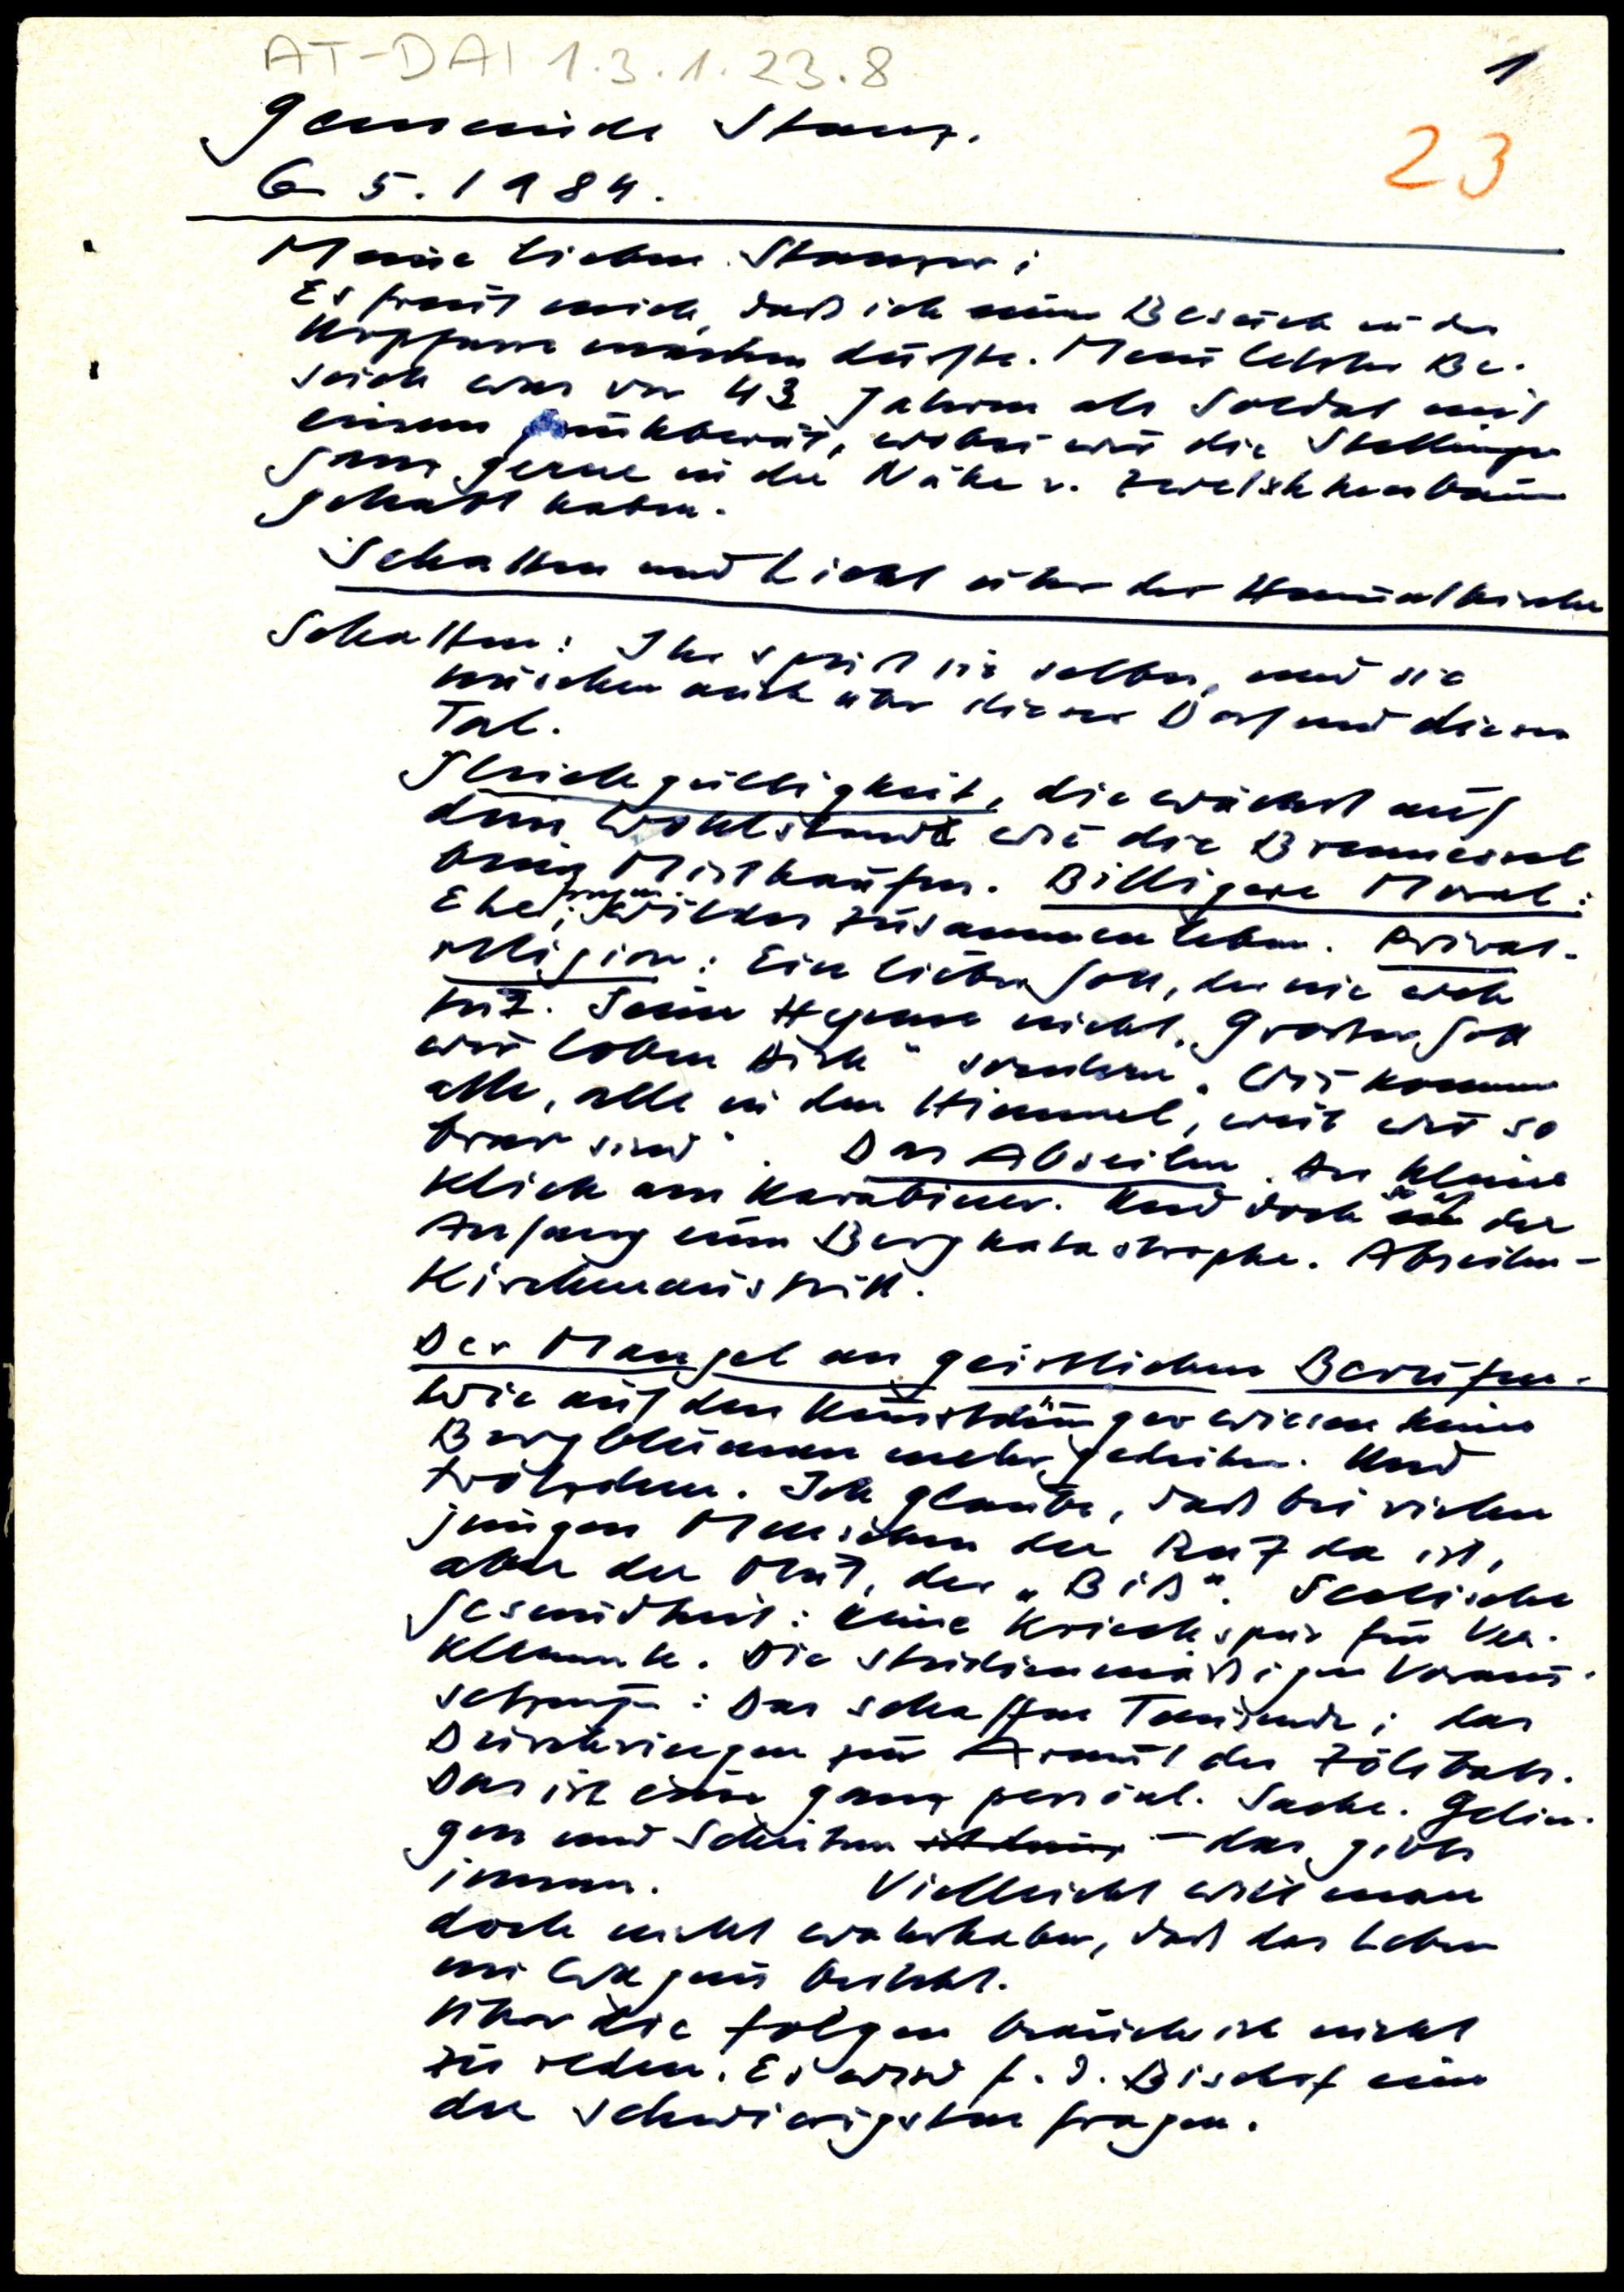 AT-DAI 1.3.1.23.8
1
Gemeinde Stanz.
23
6 5. 1984.
Meine lieben Stanzer;
Es freut mich, daß ich einen Besuch in der
Urpfarre machen durfte. Mein letzter Be-
such war vor 43 Jahren als Soldat mit
einem Funktrupp, wobei wir die Stellungen
ganz gerne in der Nähe v. Zwetschkenbäumen
gehabt haben.
Schatten und Licht über der Heimatkirche
Schatten: Ihr spürt sie selber, und sie
huschen auch über dieses Dorf und dieses
Tal.
Gleichgültigkeit, die wächst auf
dem Wohlstand wie die Brennessel
beim Misthaufen. Billigere Moral:
Ehefragen; Wildes Zusammenleben. Privat-
religion: Ein lieber Gott, der nie weh
tut. Seine Hymne nicht „Großer Gott
wir loben Dich" sondern „Wir kommen
alle, alle in den Himmel, weil wir so
brav sind". Das Abseilen. Der kleine
Klick am Karabiner. Und doch so oft der
Anfang einer Bergkatastrophe. Abseilen -
Kirchenaustritt.
Der Mangel an geistlichen Berufen.
Wie auf den Kunstdüngerwiesen keine
Bergblumen mehr gedeihen. Und
trotzdem. Ich glaube, daß bei vielen
jungen Menschen der Ruf da ist,
aber der Mut, der „Biß". Seelische
Gesundheit: keine Kriechspur für Ver-
klemmte. Die studienmäßigen Voraus-
setzungen: Das schaffen Tausende; das
Durchringen zur Armut des Zölibats.
Das ist eine ganz persönl. Sache. Gelin-
gen und Scheitern - das gibts
immer. Vielleicht will man
doch nicht wahrhaben, daß das Leben
im Wagnis besteht.
Über die Folgen brauche ich nicht
zu reden. Es wird f. d. Bischof eine
der schwierigsten Fragen.